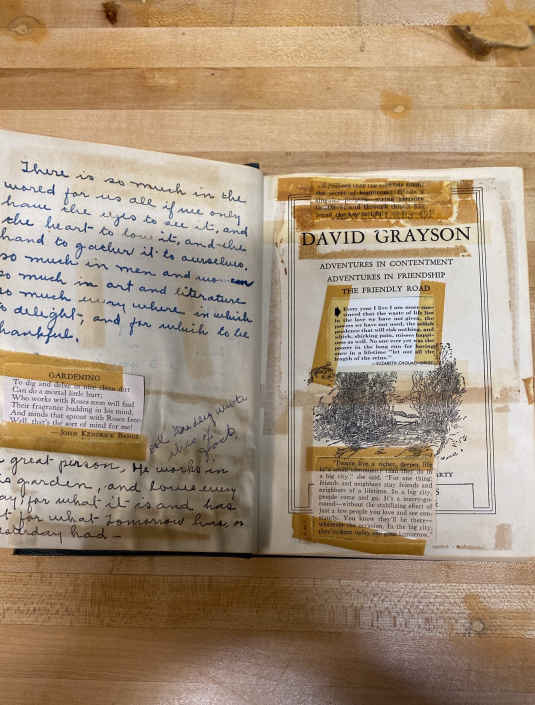 There is so much in the
world for us all if we only
have the eyes to see it, and
the heart to love it, and the
hand to gather it to ourselves.
so much in men and women
so much in art and literature
so much every where in which
to delight, and for which to be
thankful.
GARDENING
To dig and delve in nice clean dirt
Can do a mortal little hurt;
Who works with Roses soon will find
Their fragrance budding in his mind,
And minds that sprout with Roses free
Well, that's the sort of mind for me!
—JOHN KENDRICK BANGS
great person, He works in
his garden, and loves every
day, for what it is and has
not for what tomorrow has, or
yesterday had—
DAVID GRAYSON
ADVENTURES IN CONTENTMENT
ADVENTURES IN FRIENDSHIP
THE FRIENDLY ROAD
Every year I live I am more con-
vinced that the waste of life lies
in the love we have not given, the
powers we have not used, the selfish
prudence that will risk nothing, and
which, shirking pain, misses happi-
ness as well. No one ever yet was the
poorer in the long run for having
once in a life-time "let out all the
length of the reins."
—ELIZABETH CHOLMONDELEY
live a richer, deeper life
in a small community than they do in
a big city," she said. "For one thing
friends and neighbors stay friends and
neighbors of a lifetime. In a big city,
people come and go. It's a merry-go-
round—without the stabilizing effect of
just a few people you love and see con-
You know they'll be there—
whatever the occasion. In the big city,
they
PARTY